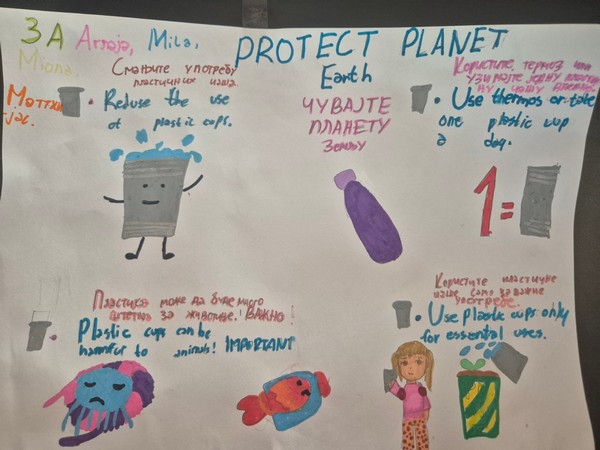 3A Anaja, Mila,
Миона,
Маттхи
јас.
PROTECT PLANET
Earth
ЧУВАЈТЕ
ПЛАНЕТУ
Земљу
Смањите употребу
пластичних чаша.
Reduse the use
of plastic cups.
Користите термоз или
узимајте једну
чашу
Use thermos or take
one plastic cup
a day.
1=
Пластика може да буде много
штетна за животиње! ВАЖНО!
Plastic cups can be
harmful to animals! IMPORTANT
Користите пластичне
чаше само за важне
употребе.
Use plastic cups only
for essential uses.